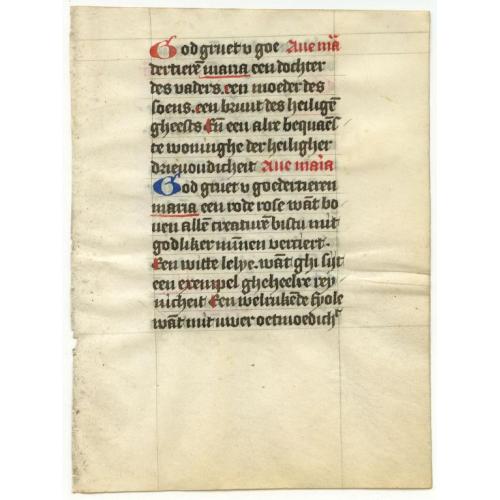 God gruet v goe Aue mã
dertierẽ maria een dochter
des vaders. een moeder des
soens. een bruut des heiligẽ
gheests Eñ een alre bequaẽs
te woninghe der heiligher
drieuoudicheit Aue maria
God gruet v goedertieren
maria een rode rose wãt bo
uen allẽ creaturẽ bistu mit
godliker mĩnen verciert.
Een witte lelye. wãt ghi sijt
een exempel gheheelre rey
nicheit Een welrukẽde fyole
wãt mit uwer oetmoedich